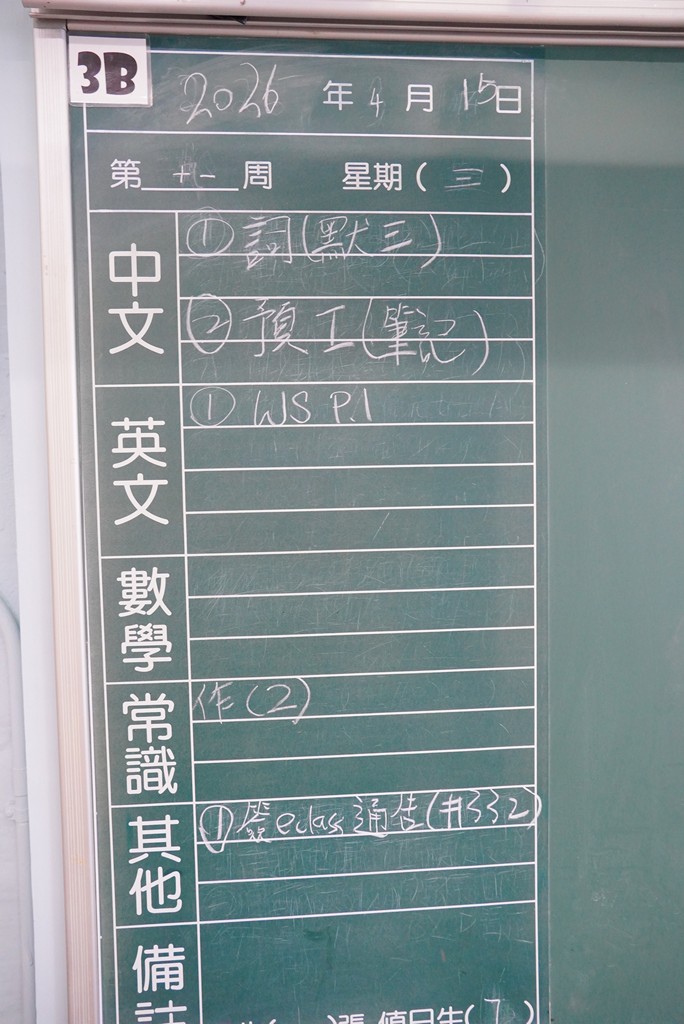 3B
2026 年 4 月 15 日
第 十一 周 星期 ( 三 )
中文
① 詞(默三)
② 預工(筆記)
英文
① WS P.1
數學
常識
作(2)
其他
① 簽eclass通告(#332)
備註
張 值日生(7)